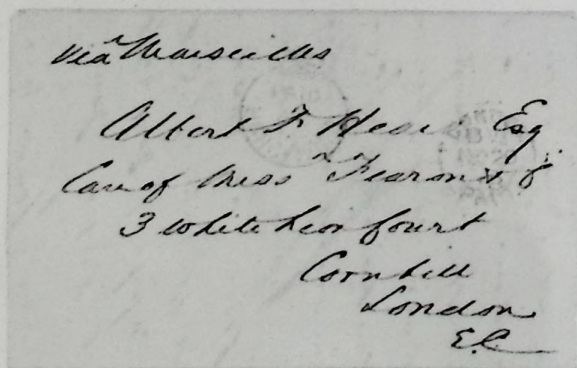 via Marseilles
Albert F Heard Esq
Care of Mess^rs Fearon & Co
3 White Lion Court
Cornhill
London
E.C